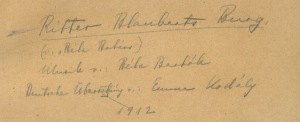 Ritter Blaubarts Burg.
(v. Béla Balázs)
Musik v.: Béla Bartók
Deutsche Übersetzung v.: Emma Kodály
1912